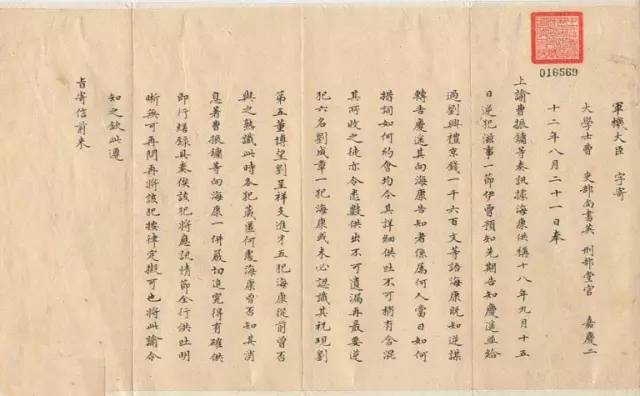 016569
軍機大臣 字寄
大學士曹 吏部尚書英 刑部堂官 嘉慶二
十二年八月二十一日奉
上諭曹振鏞等奏訊據海康供稱十八年九月十五
日逆犯滋事一節伊曾預知先期告知慶遙並給
過劉興禮京錢一千六百文等語海康既知逆謀
轉告慶遙其向海康告知者係屬何人當日如何
措詞如何約會均令其詳細供吐不可稍有含混
其所收之徒亦令悉數供出不可遺漏再最要逆
犯六名劉成章一犯海康或未必認識其祝現劉
第五董博望劉呈祥支進才五犯海康從前曾否
與之熟識此時各犯藏匿何處海康曾否知其消
息著曹振鏞等向海康一併嚴切追究得有確供
即行繕錄具奏俟該犯將應訊情節全行供吐明
晰無可再問再將該犯按律定擬可也將此諭令
知之欽此遵
旨寄信前來